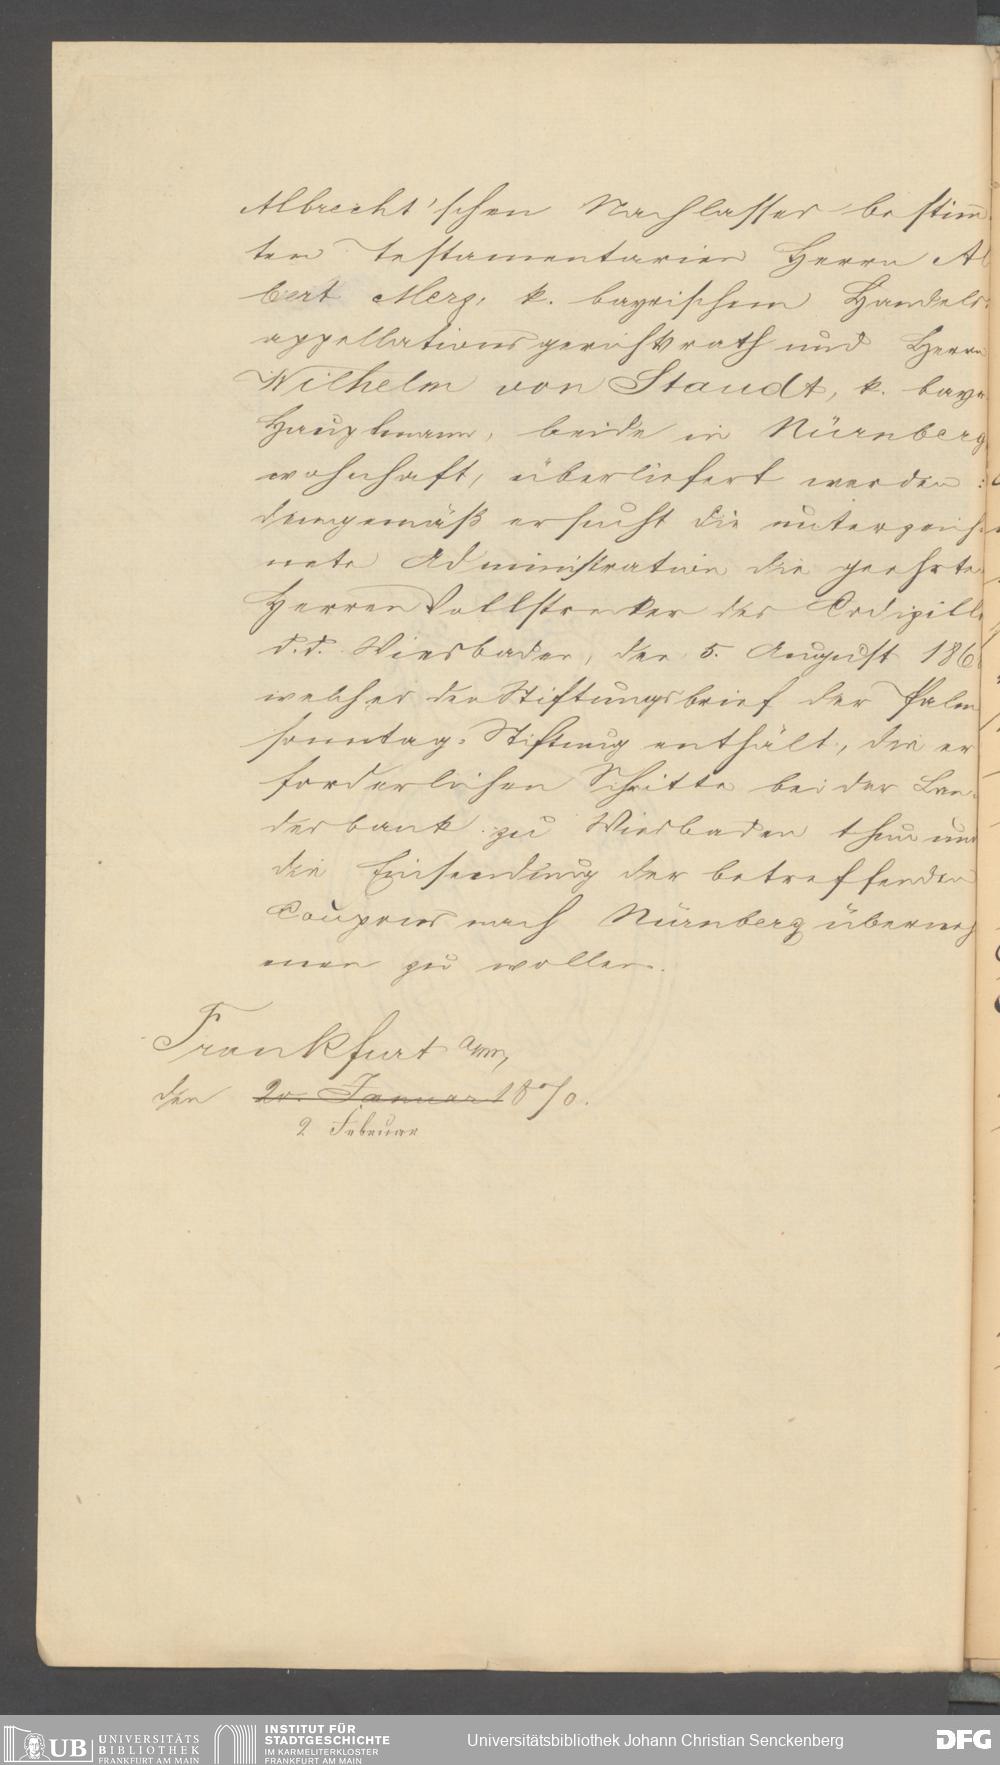 Albrecht'schen Nachlasses bestimm
ten Testamentarien Herrn Al
bert Merz, k. bayrischem Handels-
appellationsgerichtsrath und Herrn
Wilhelm von Staudt, k. bayr
Hauptmann, beide in Nürnberg
wohnhaft, überliefert werden:
demgemäß ersucht die unterzeich-
nete Administration die geehrten
Herren Vollstrecker des Codizills
d.d. Wiesbaden, den 5. August 186
welches den Stiftungsbrief der Palm
sonntag-Stiftung enthält, die er
forderlichen Schritte bei der Lan-
desbank zu Wiesbaden thun und
die Einsendung der betreffenden
Coupons nach Nürnberg überneh
men zu wollen.
Frankfurt a/m,
den 20. Januar 1870.
2 Februar
UB UNIVERSITÄTS
BIBLIOTHEK
FRANKFURT AM MAIN
INSTITUT FÜR
STADTGESCHICHTE
IM KARMELITERKLOSTER
FRANKFURT AM MAIN
Universitätsbibliothek Johann Christian Senckenberg
DFG